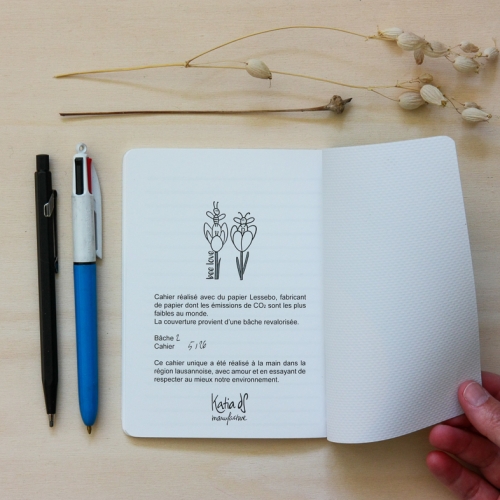 bee love
Cahier réalisé avec du papier Lessebo, fabricant
de papier dont les émissions de CO₂ sont les plus
faibles au monde.
La couverture provient d'une bâche revalorisée.
Bâche 2
Cahier 5/26
Ce cahier unique a été réalisé à la main dans la
région lausannoise, avec amour et en essayant de
respecter au mieux notre environnement.
Katia dS
manufacture